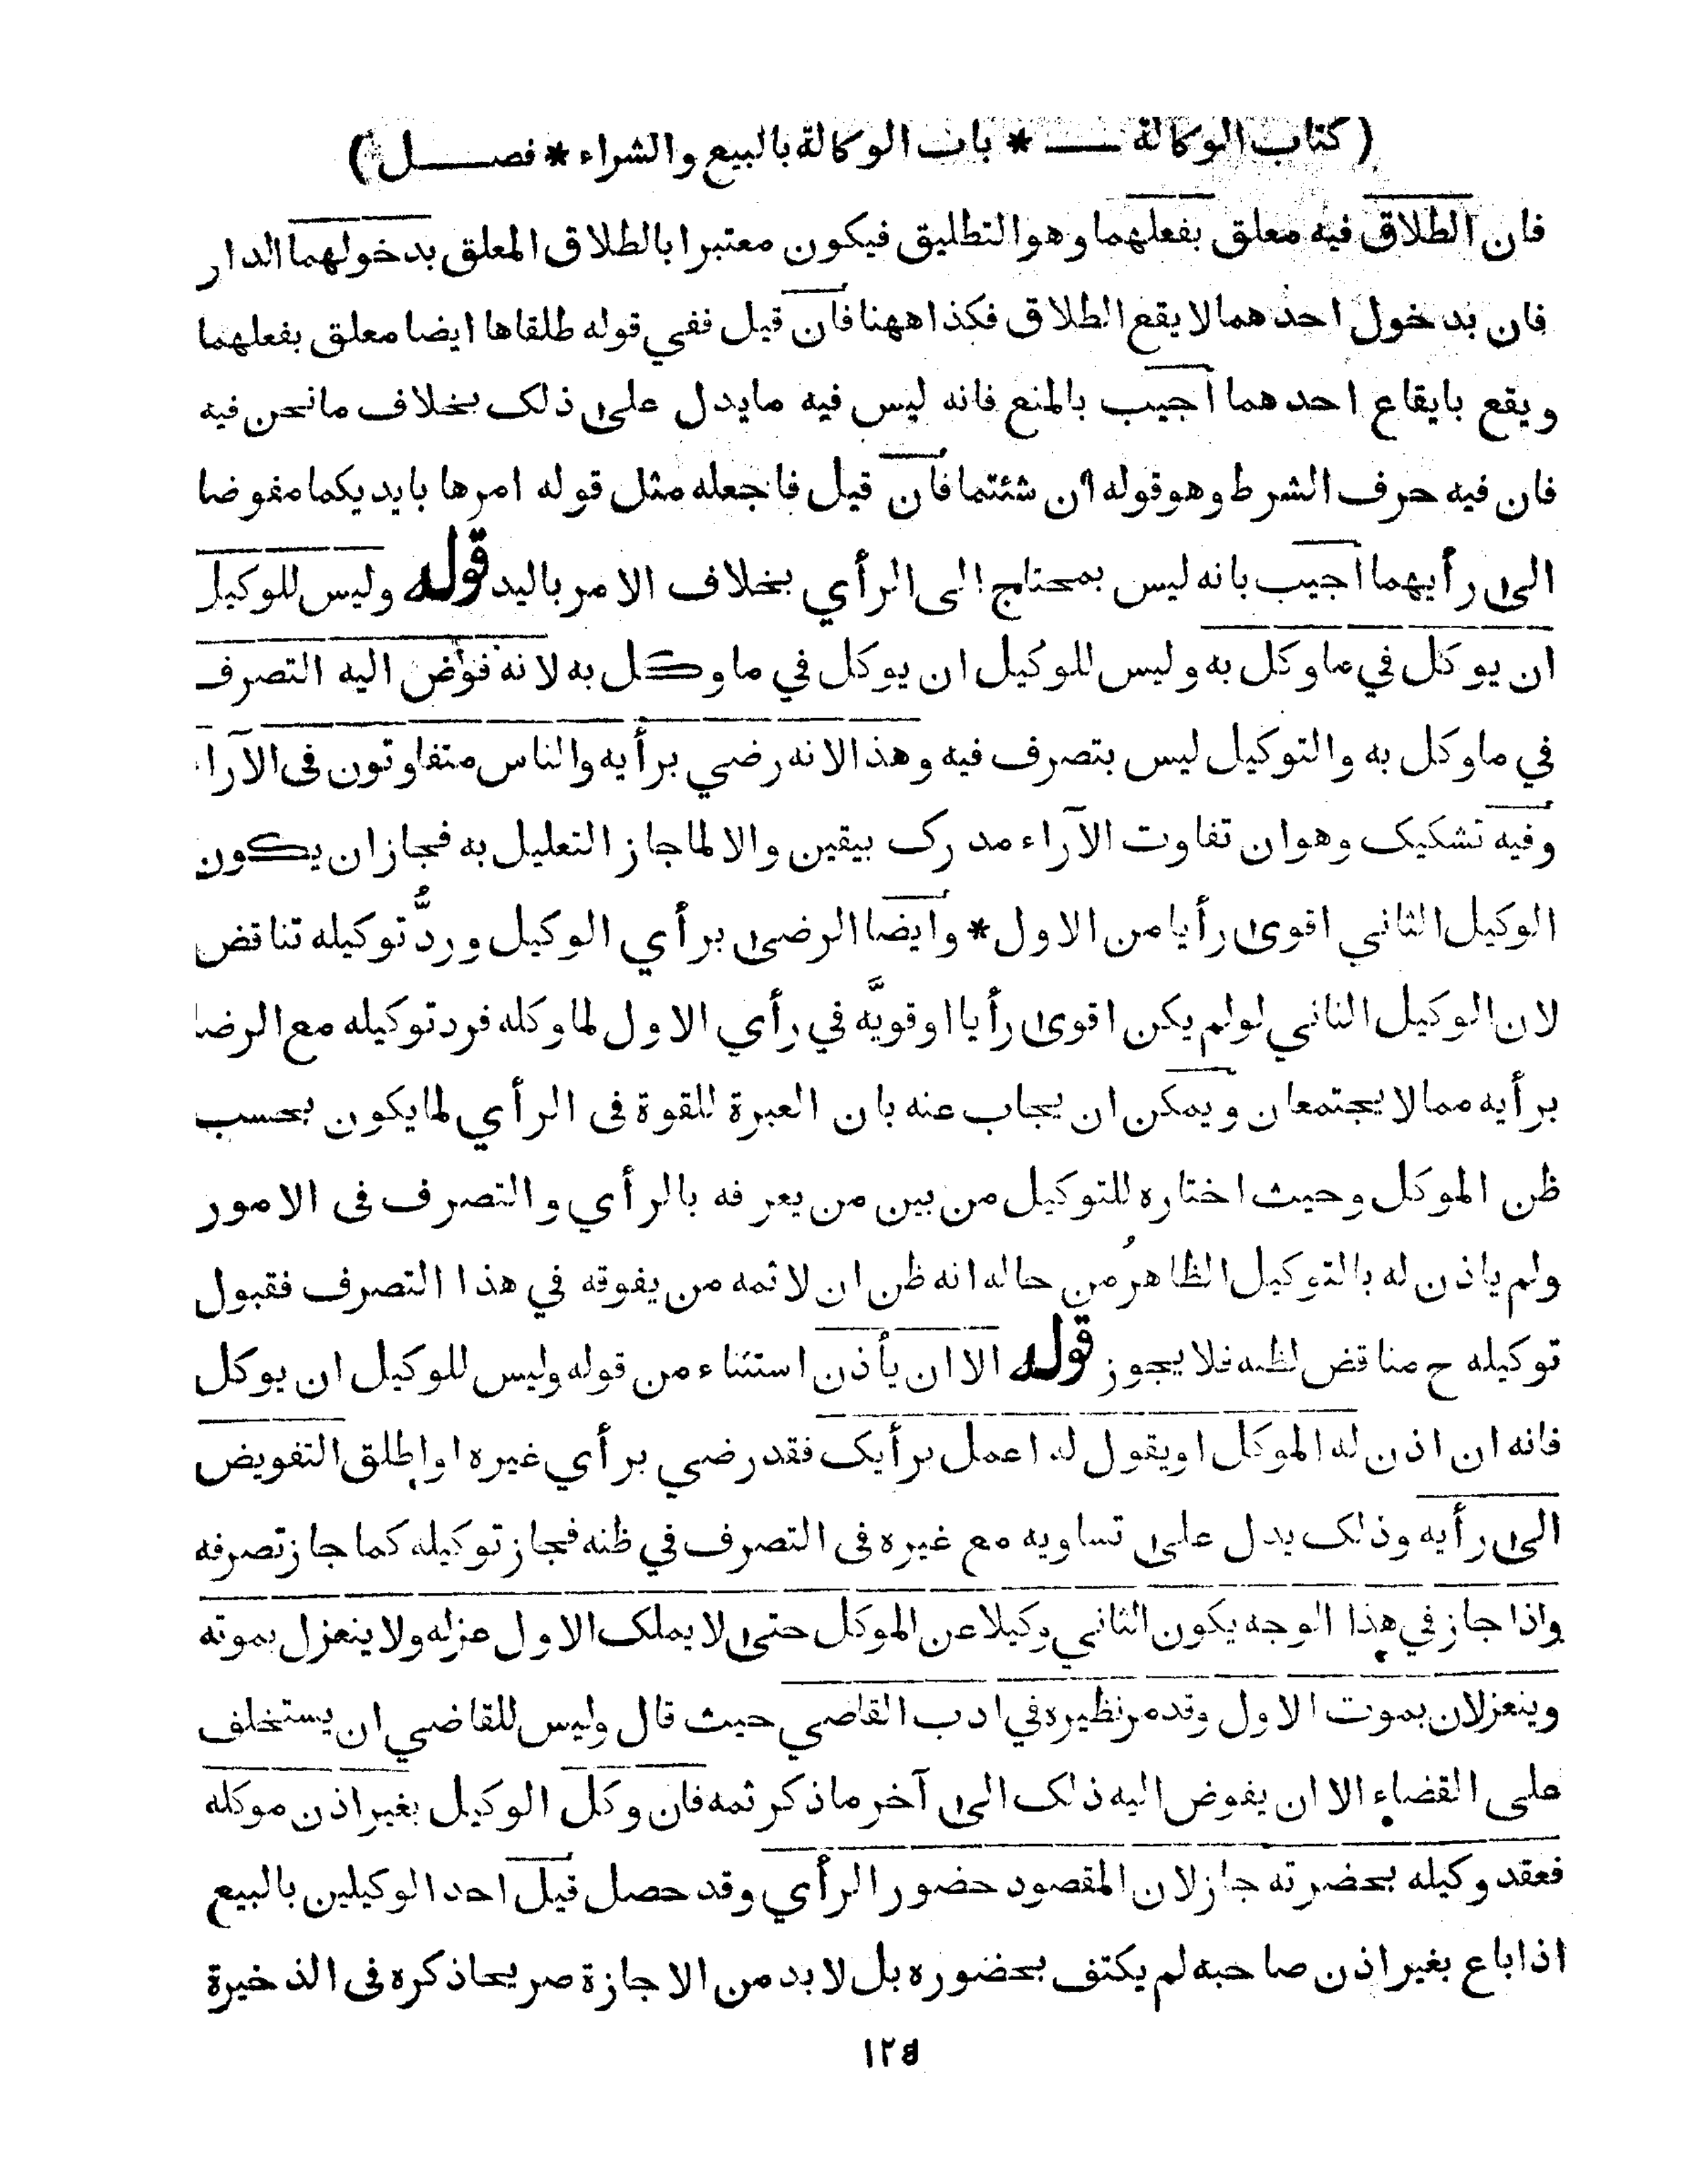 (كتاب الوكالة ـــ * باب الوكالة بالبيع والشراء * فصـــل)
فان الطلاق فيه معلق بفعلهما وهو التطليق فيكون معتبرا بالطلاق المعلق بدخولهما الدار
فان بدخول احدهما لا يقع الطلاق فكذا ههنا فان قيل ففي قوله طلقاها ايضا معلق بفعلهما
ويقع بايقاع احدهما اجيب بالمنع فانه ليس فيه ما يدل على ذلك بخلاف ما نحن فيه
فان فيه حرف الشرط وهو قوله ان شئتما فان قيل فاجعله مثل قوله امرها بايديكما مفوضا
الى رأيهما اجيب بانه ليس بمحتاج الى الرأي بخلاف الامر باليد قوله وليس للوكيل
ان يوكل في ما وكل به وليس للوكيل ان يوكل في ما وكل به لانه فوض اليه التصرف
في ما وكل به والتوكيل ليس بتصرف فيه وهذا لانه رضي برأيه والناس متفاوتون فى الآراء
وفيه تشكيك وهو ان تفاوت الآراء مدرك بيقين والا لما جاز التعليل به فجاز ان يكون
الوكيل الثاني اقوى رأيا من الاول * وايضا الرضى برأي الوكيل وردُّ توكيله تناقض
لان الوكيل الثاني لو لم يكن اقوى رأيا او قويَّه في رأي الاول لما وكله فرد توكيله مع الرضا
برأيه مما لا يجتمعان ويمكن ان يجاب عنه بان العبرة للقوة فى الرأي لما يكون بحسب
ظن الموكل وحيث اختاره للتوكيل من بين من يعرفه بالرأي والتصرف فى الامور
ولم ياذن له بالتوكيل الظاهرُ من حاله انه ظن ان لا ثمه من يفوقه في هذا التصرف فقبول
توكيله ح مناقض لظنه فلا يجوز قوله الا ان يأذن استثناء من قوله وليس للوكيل ان يوكل
فانه ان اذن له الموكل او يقول له اعمل برأيك فقد رضي برأي غيره او اطلق التفويض
الى رأيه وذلك يدل على تساويه مع غيره فى التصرف في ظنه فجاز توكيله كما جاز تصرفه
واذا جاز في هذا الوجه يكون الثاني وكيلا عن الموكل حتى لا يملك الاول عزله ولا ينعزل بموته
وينعزلان بموت الاول وقد مر نظيره في ادب القاضي حيث قال وليس للقاضي ان يستخلف
على القضاء الا ان يفوض اليه ذلك الى آخر ما ذكر ثمه فان وكل الوكيل بغير اذن موكله
فعقد وكيله بحضرته جاز لان المقصود حضور الرأي وقد حصل قيل احد الوكيلين بالبيع
اذا باع بغير اذن صاحبه لم يكتف بحضوره بل لا بد من الاجازة صريحا ذكره فى الذخيرة